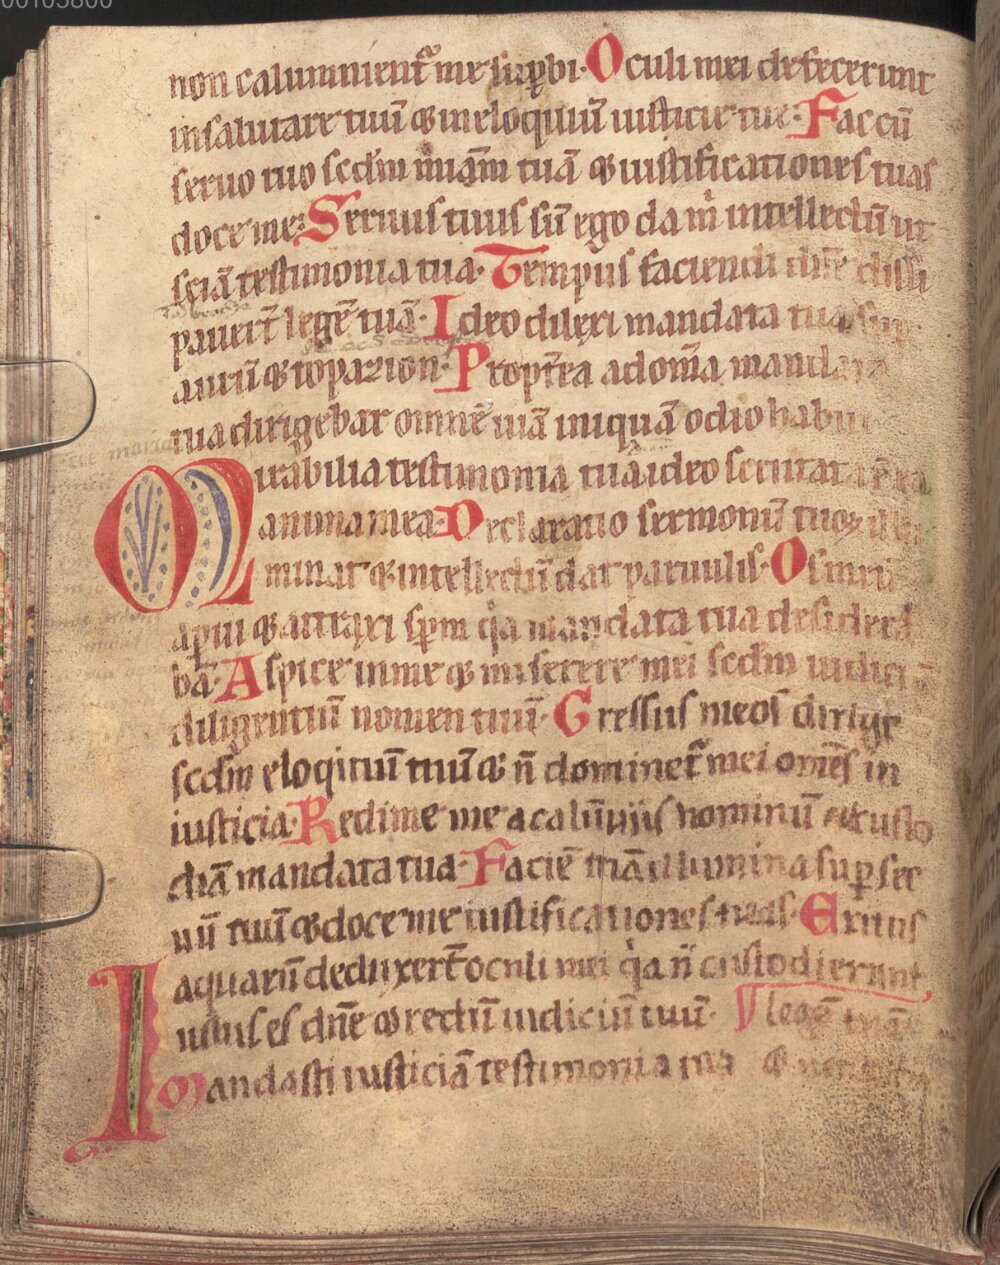 00105800
non calumnient᷑ me suꝑbi· Oculi mei defecerunt
in salutare tuū & in eloquiū iusticie tue· Fac cū
seruo tuo scdm̄ mīam tuā & iustificationes tuas
doce me· Seruus tuus sū ego da m̍ intellectū ut
sciā testimonia tua· Tempus faciendi dn̄e dissi
pauer̄t legē tuā· Ideo dilexi mandata tua sup
aurū & topazion· Propt̄ea ad om̄a mandata
tua dirigebar omnē uiā iniquā odio habui
Mirabilia testimonia tua ideo scrutata ē ea
anima mea· Declaratio sermonū tuoꝝ illu
minat & intellectū dat paruulis· Os meū
aperui & attraxi sp̄m q̍a mandata tua desidera
bā· Aspice in me & miserere mei scdm̄ iudiciū
diligentiū nomen tuū· Gressus meos dirige
scdm̄ eloqiuū tuū & n̄ dominet᷑ mei om̄is in
iusticia· Redime me a calūniis hominū ut custo
diā mandata tua· Faciē tuā illumina suꝑ ser
uū tuū & doce me iustificationes tuas· Exitus
aquarū deduxer̄t oculi mei q̍a n̄ custodierunt
Iustus es dn̄e & rectū iudiciū tuū· legē tuā
Mandasti iusticiā testimonia tua &